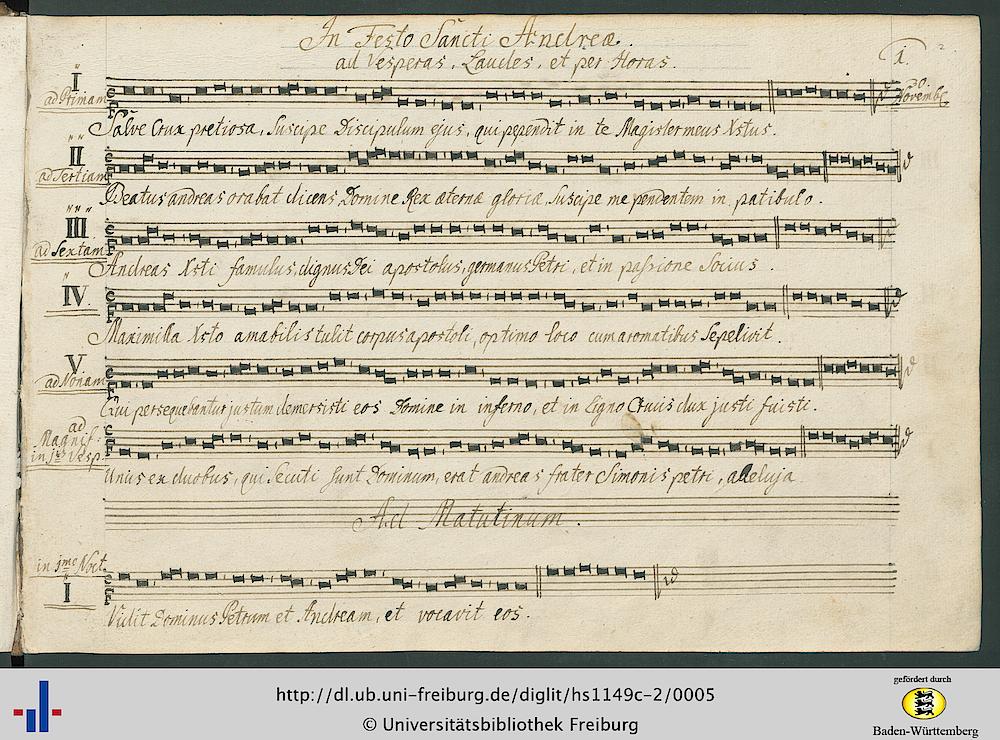 In Festo Sancti Andreæ.
ad Vesperas, Laudes, et per Horas.
1.
30. Novemb.
I
ad Primam
Salve Crux pretiosa, Suscipe Discipulum ejus, qui pependit in te Magister meus Xstus.
II
ad Tertiam
Beatus andreas orabat dicens Domine Rex æternæ gloriæ Suscipe me pendentem in patibulo.
III
ad Sextam
Andreas Xsti famulus, dignus Dei apostolus, germanus Petri, et in passione Socius.
IV.
Maximilla Xsto amabilis tulit corpus apostoli, optimo loco cum aromatibus Sepelivit.
V
ad Nonam
Qui persequebantur justum demersisti eos Domine in inferno, et in Ligno Crucis dux justi fuisti.
ad
Magnif.
in j.æ Vesp.
Unus ex duobus, qui Secuti Sunt Dominum, erat andreas frater Simonis petri, alleluja
Ad Matutinum.
in jmo Noct.
I
Vidit Dominus Petrum et Andream, et vocavit eos.
http://dl.ub.uni-freiburg.de/diglit/hs1149c-2/0005
© Universitätsbibliothek Freiburg
gefördert durch
Baden-Württemberg